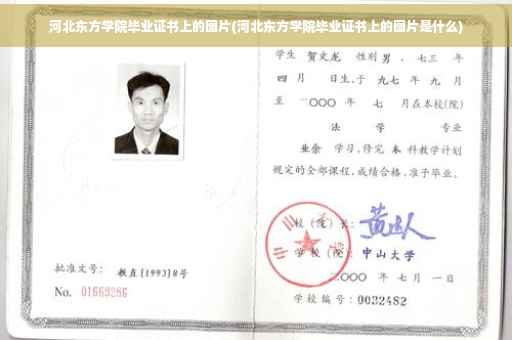 河北东方学院毕业证书上的图片(河北东方学院毕业证书上的图片是什么)
学生 贺文龙 性别 男 、七三 年
四 月 日生,于 九七 年 九 月
至 二〇〇〇 年 七 月在本校(院)
法 学 专业
业余 学习,修完 本 科教学计划
规定的全部课程,成绩合格,准予毕业。
校(院)长:
学校(院): 中山大学
二〇〇〇 年 七 月 一 日
学校编号:0032482
批准文号: 教直[1993]8号
No. 01669286